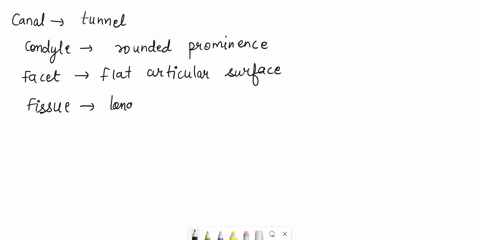 Canal → tunnel
Condyle → rounded prominence
facet → flat articular surface
Fissue → lono